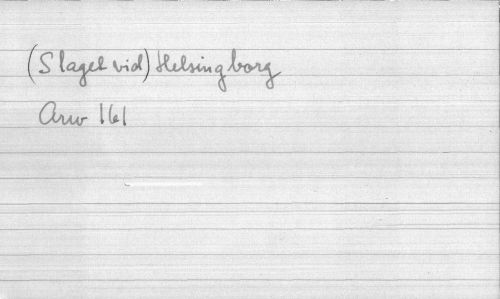 (Slaget vid) Helsingborg
Arw 161